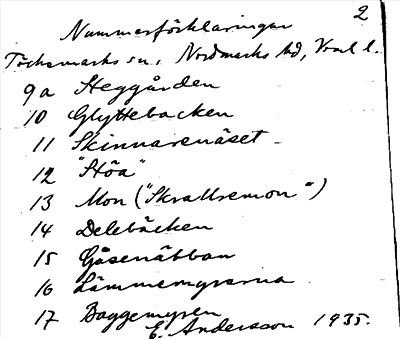 2
Nummerförklaringar
Töcksmarks sn, Nordmarks hd, Vrml l.
9a Heggården
10 Glyttebacken
11 Skinnarenäset
12 "Höa"
13 Mon ("Skrallremon")
14 Delebäcken
15 Gåsenäbban
16 Lämmemyrarna
17 Baggemyren
E. Andersson 1935.